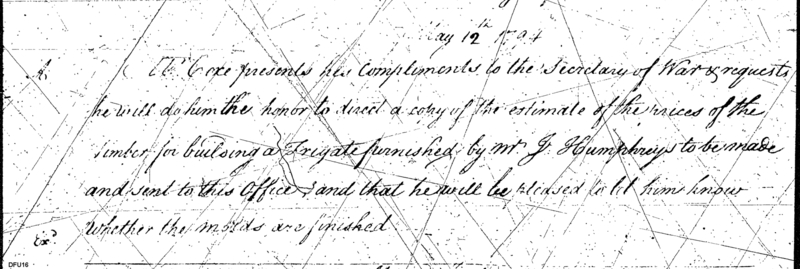 May 12th 1794
A. Mr Coxe presents his Compliments to the Secretary of War & requests
he will do him the honor to direct a copy of the estimate of the prices of the
timber for building a Frigate furnished by Mr J Humphreys to be made
and sent to this Office, and that he will be pleased to let him know
whether the molds are finished.
Exd
DFU16